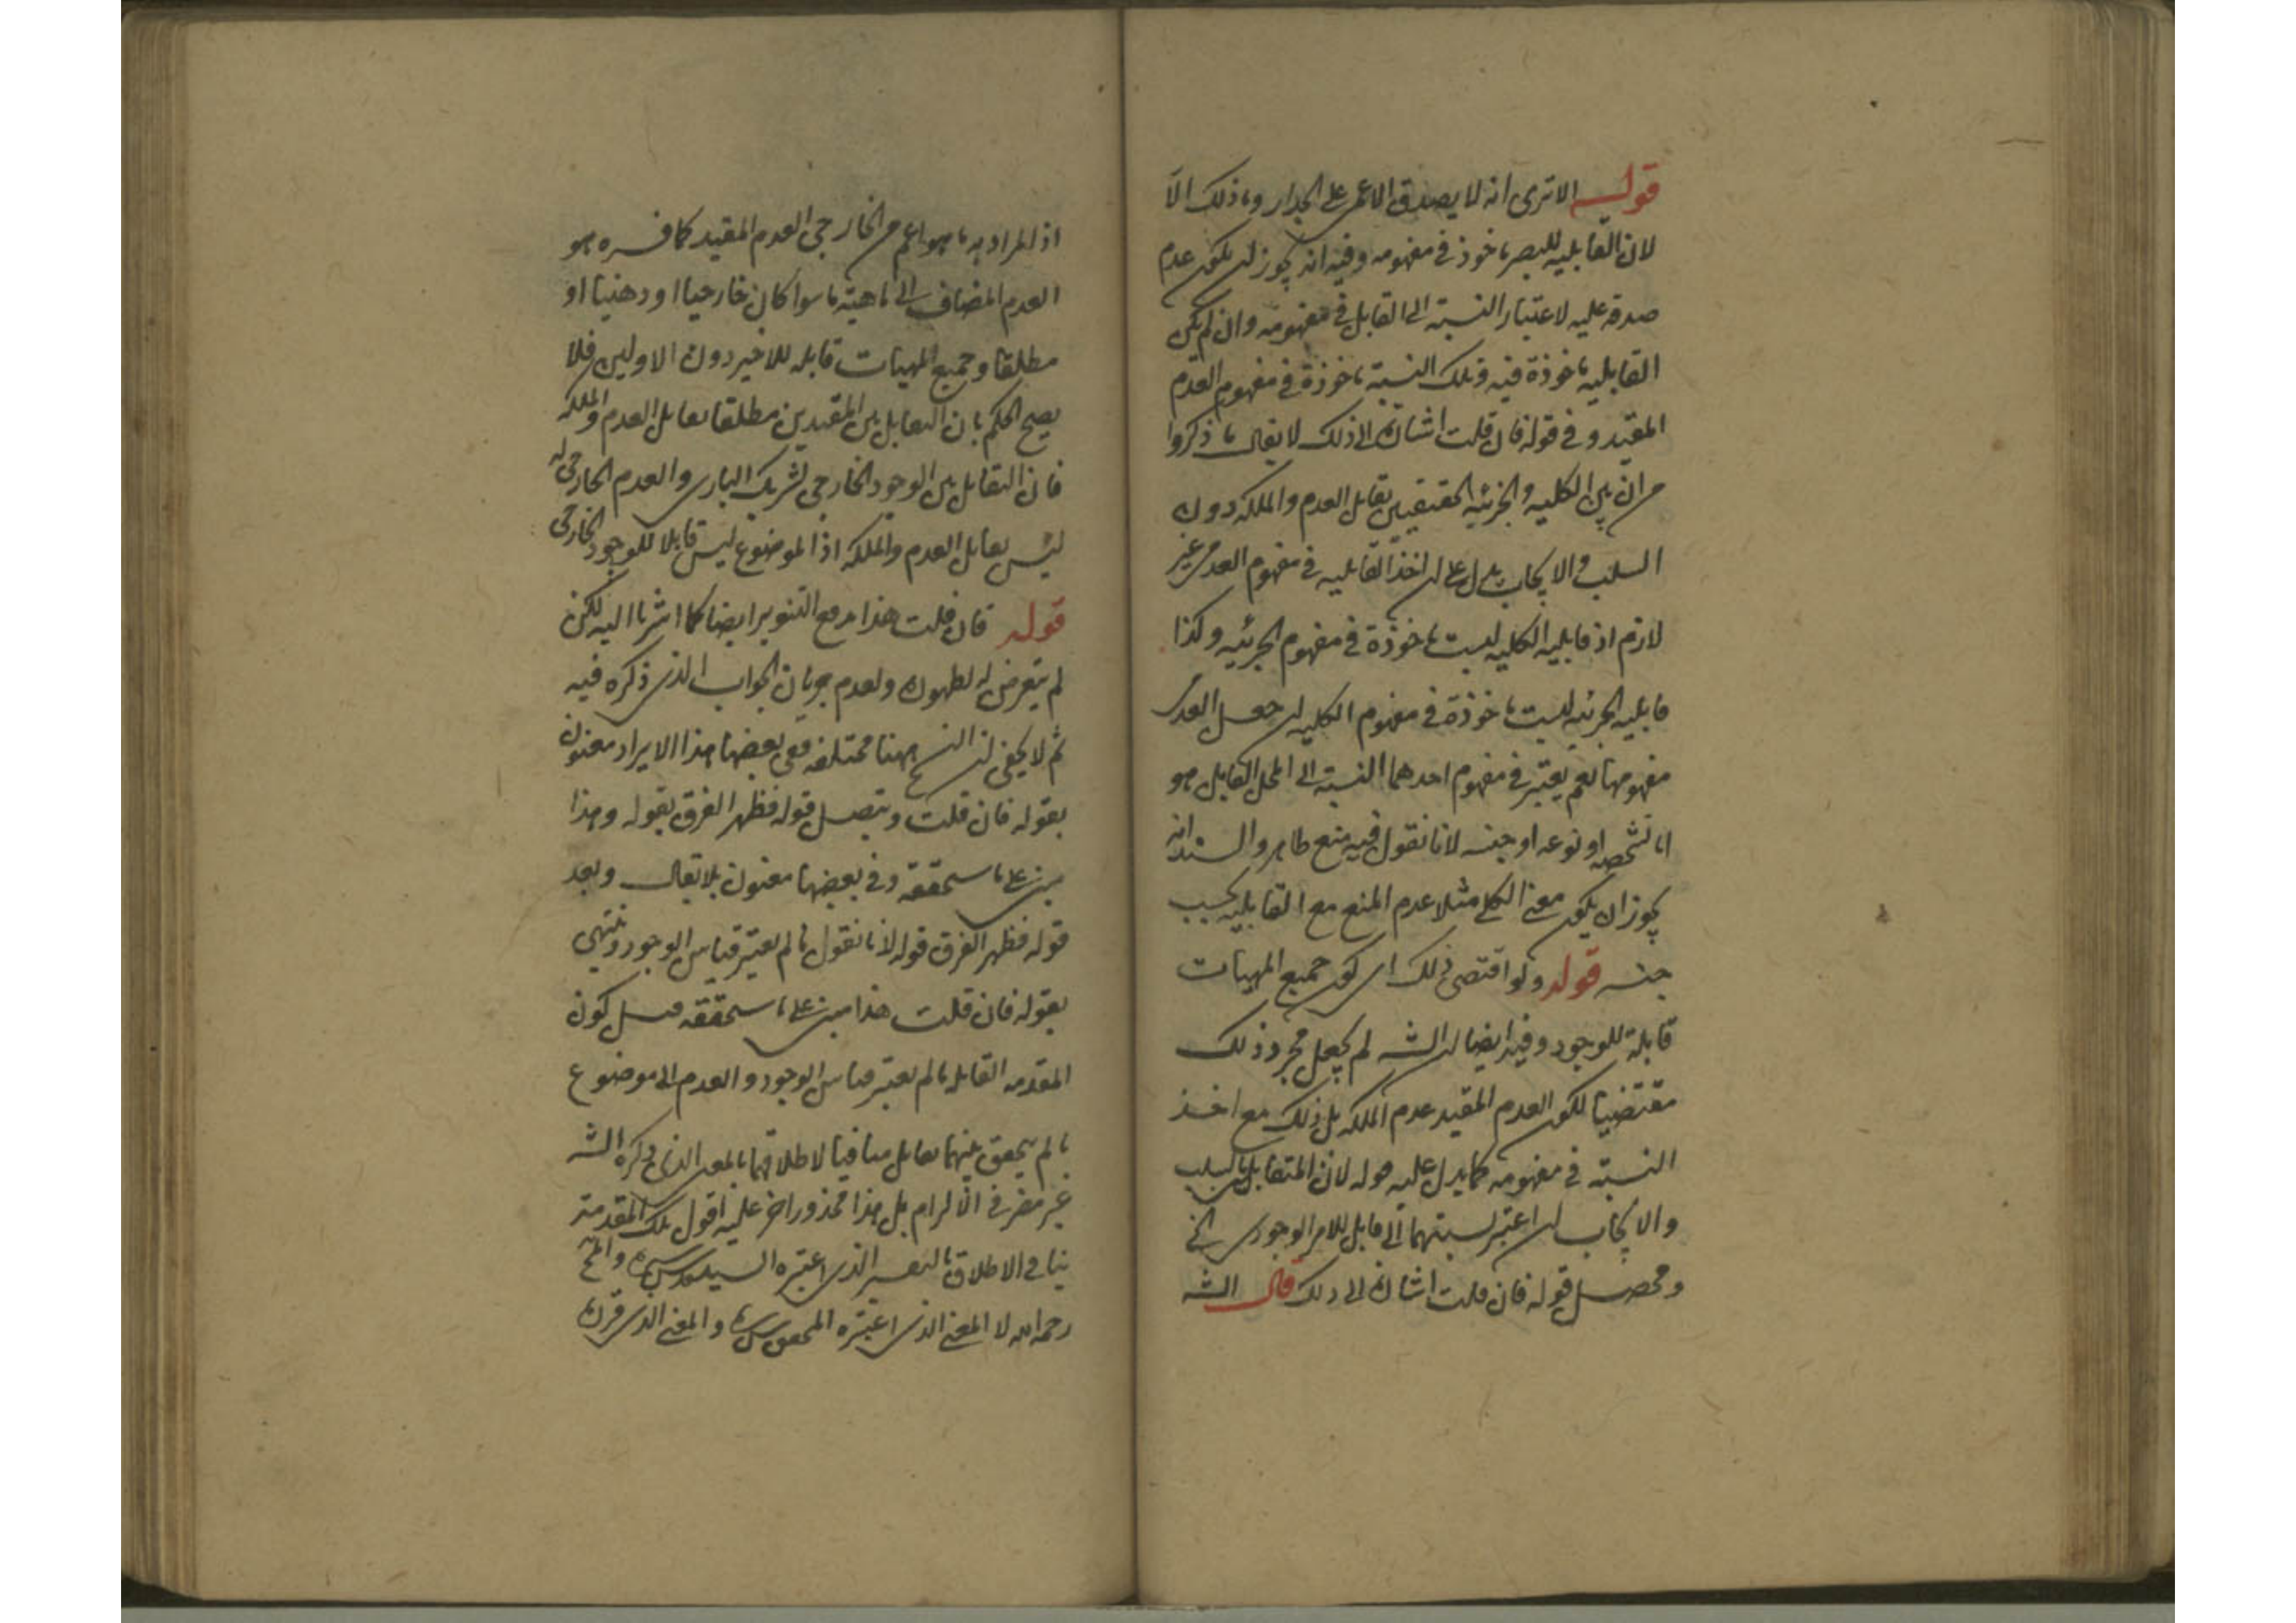 قوله الا ترى انه لا يصدق الاعمى على الجدار وما ذلك الا
لان القابلية للبصر ماخوذ في مفهومه وفيه انه يجوز ان يكون عدم
صدقه عليه لاعتبار النسبة الى القابل في مفهومه وان لم يكن
القابلية ماخوذة فيه وتلك النسبة ماخوذة في مفهوم العدم
المقيد وفي قوله فان قلت اشارة الى ذلك لا يقال ما ذكروا
من ان بين الكلية والجزئية الحقيقيين تقابل العدم والملكة دون
السلب والايجاب يدل على ان اخذ القابلية في مفهوم العدمي غير
لازم اذ قابلية الكلية ليست ماخوذة في مفهوم الجزئية وكذا
قابلية الجزئية ليست ماخوذة في مفهوم الكلية ان جعل العدمي
مفهومها نعم يعتبر في مفهوم احدهما النسبة الى المحل القابل هو
اما شخصه او نوعه او جنسه لانا نقول فيه منع ظاهر والسند انه
يجوز ان يكون معنى الكلي مثلا عدم المنع مع القابلية بحسب
جنسه قوله ولو اقتضى ذلك اي كون جميع المهيات
قابلة للوجود وفيه ايضا ان الشـ لم يجعل مجرد ذلك
مقتضيا لكون العدم المقيد عدم الملكة بل ذلك مع اخذ
النسبة في مفهومه كما يدل عليه قوله لان المتقابلين بالسلب
والايجاب ان اعتبر نسبتهما الى قابل للامر الوجودي الخ
ومحصل قوله فان قلت اشارة الى ذلك قال الشـ
اذ المراد به ما هو اعم من الخارجي العدم المقيد كما فسره هو
العدم المضاف الى ماهية ما سوا كان خارجيا او ذهنيا او
مطلقا وجميع المهيات قابلة للاخير دون الاولين فلا
يصح الحكم بان التقابل بين المقيدين مطلقا تقابل العدم والملكة
فان التقابل بين الوجود الخارجي لشريك الباري والعدم الخارجي له
ليس تقابل العدم والملكة اذ الموضوع ليس قابلا للوجود الخارجي
قوله فان قلت هذا مدفع التنوير ايضا كما اشرنا اليه لكن
لم يتعرض له لظهوره ولعدم جريان الجواب الذي ذكره فيه
ثم لا يخفى ان النسخ ههنا مختلفة ففي بعضها هذا الايراد معنون
بقوله فان قلت ويتصل قوله فظهر الفرق بقوله وهذا
مبني على ما سنحققه وفي بعضها معنون بلا يقال وبعد
قوله فظهر الفرق قوله لانا نقول ما لم يعتبر قياس الوجود وينتهي
بقوله فان قلت هذا مبني على ما سنحققه قيل كون
المقدمة القابلة ما لم يعتبر قياس الوجود والعدم الى موضوع
ما لم يتحقق بينهما تقابل منافيا لاطلاقهما بالمعنى الذي ذكره الشـ
غير مضر في الالزام بل هذا محذور اخر عليه اقول تلك المقدمة
ينافي الاطلاق بالتفسير الذي اعتبره السيد قدس سره والمحـ
رحمه الله لا المعنى الذي اعتبره المحقق والمعنى الذي قرره